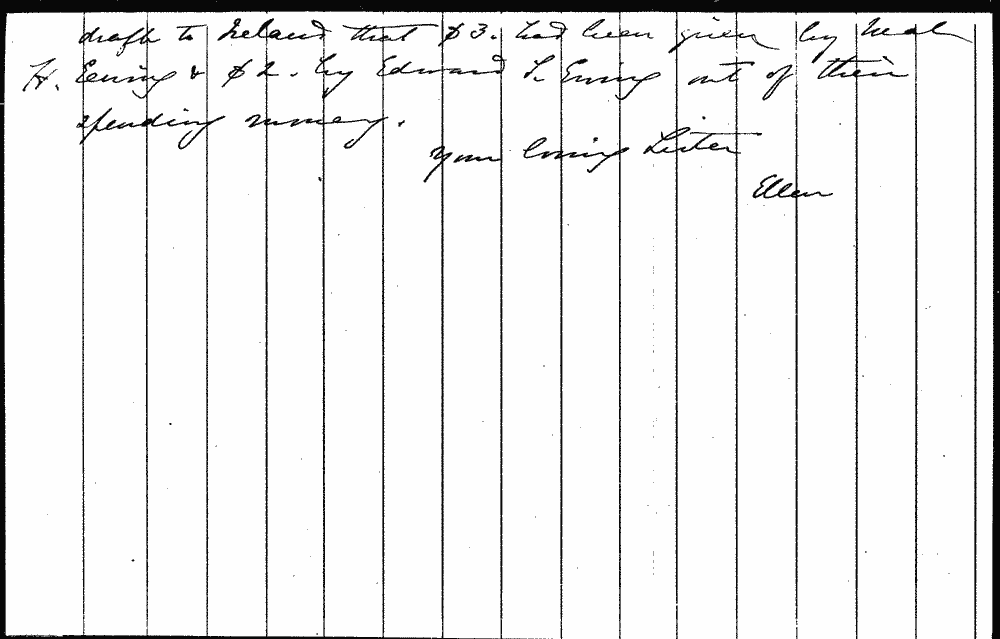 draft to Ireland that $3. had been given by Neal
H. Ewing & $2. by Edward L. Ewing out of their
spending money.
Your loving Sister
Ellen